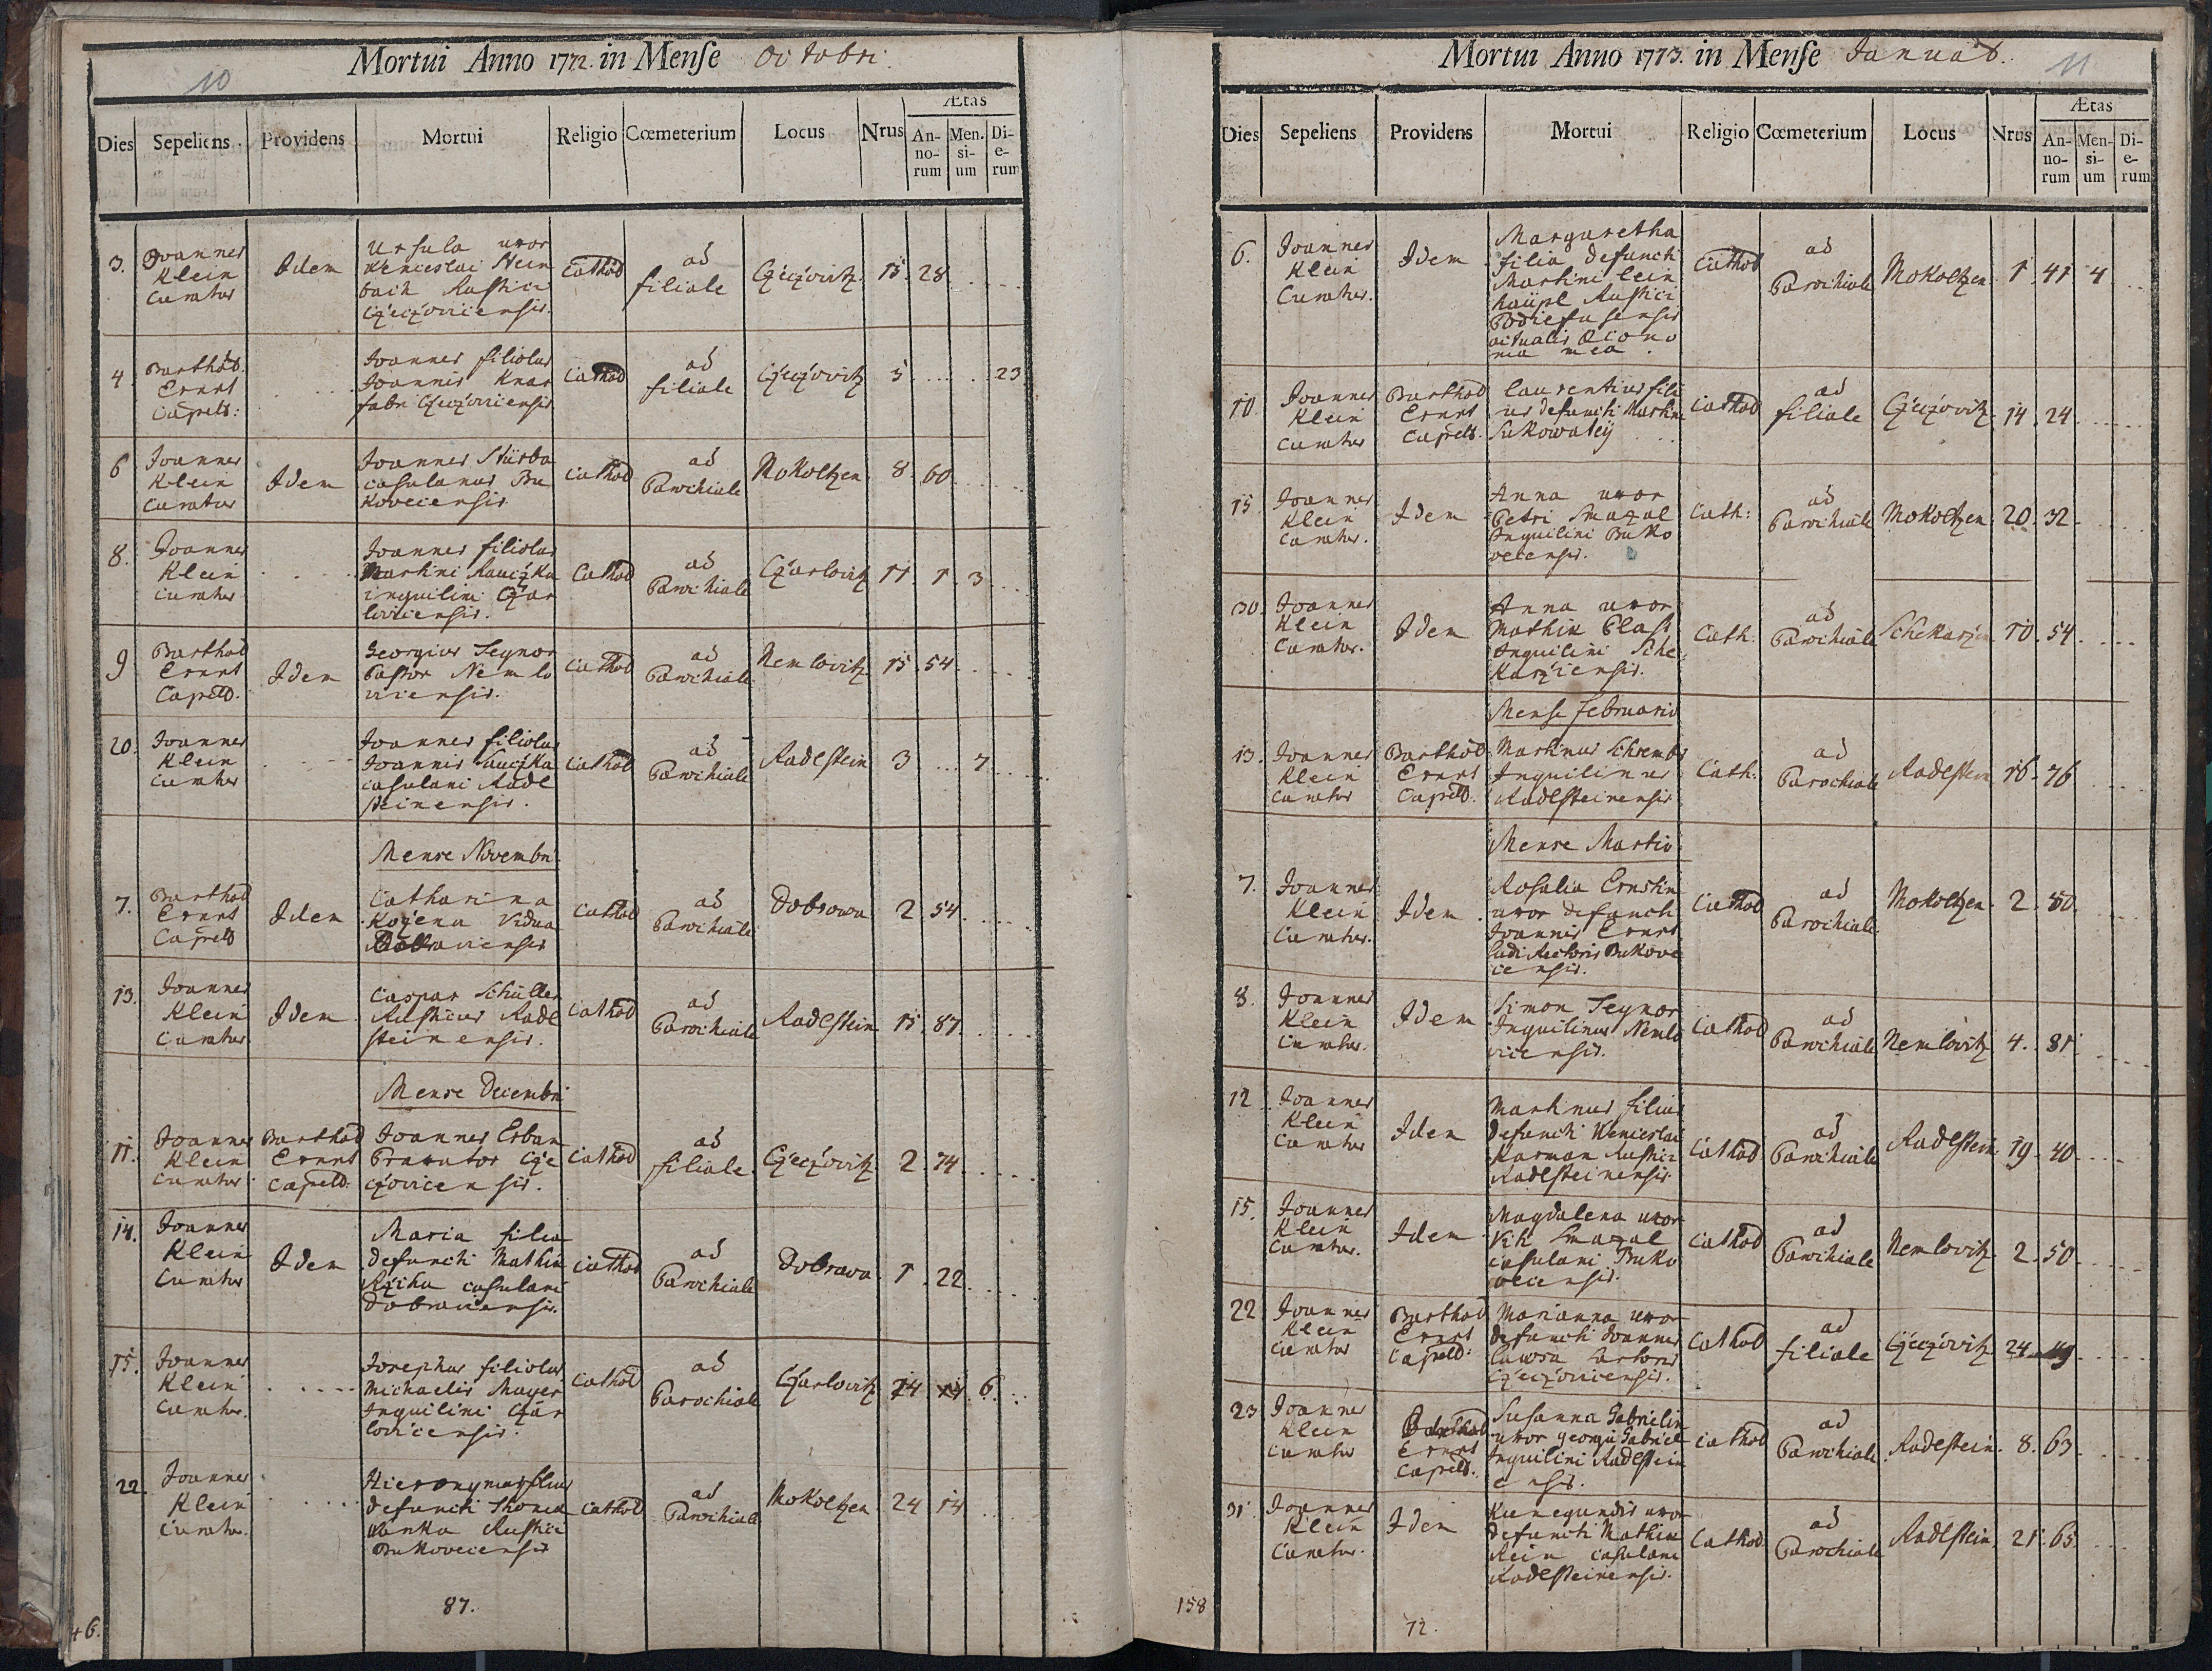 Mortui Anno 1772. in Mense Octobri.
10
Dies Sepeliens Providens Mortui Religio Cœmeterium Locus Nrus Ætas
An-no-rum Men-si-um Di-e-rum
3. Joannes Klein Curatus Idem Ursula uxor Wenceslai Steinbach Rustici Czeczovicensis. Cathol ad filiale Czeczovitz 15. 28
4. Barthol. Ernst Capell: Joannes filiolus Joannis Knar fabri Czeczovicensis Cathol ad filiale Czeczovitz 5 23
6 Joannes Klein Curatus Idem Joannes casulanus Bukovecensis Cathol ad Parochiale Mokoltzen 8. 60
8. Joannes Klein Curatus Joannes filiolus Martini inquilini Czarlovicensis. Cathol ad Parochiale Czarlovitz 11. 1. 3
9 Barthol Ernst Capell. Idem Georgius Seynor Pastor Nemlovicensis. Cathol ad Parochiale Nemlovitz 15. 54
20. Joannes Klein Curatus Joannes filiolus Joannis casulani Radlsteinensis. Cathol ad Parochiale Radlstein 3 7
Mense Novembri.
7. Barthol Ernst Capell Idem Catharina Kozena Vidua Dobravicensis Cathol ad Parochiale Dobrowa 2 54
13. Joannes Klein Curatus Idem Caspar Schüller Rusticus Radlsteinensis. Cathol ad Parochiale Radlstein 15. 87
Mense Decembri
11. Joannes Klein Curatus Barthol Ernst Capell: Joannes Erban Braxator Czeczovicensis. Cathol ad filiale Czeczovitz 2. 74
14. Joannes Klein Curatus Idem Maria filia defuncti Mathiæ casulani Dobravicensis. Cathol ad Parochiale Dobrava 1. 22
15. Joannes Klein Curatus. Josephus filiolus Michaelis Mayer Inquilini Czarlovicensis. Cathol ad Parochiale Czarlovitz 14 6
22. Joannes Klein Curatus. Hieronymus filius defuncti Thomæ Wanka Rustici Bukovecensis Cathol ad Parochiale Mokoltzen 24 14
87.
+6.
Mortui Anno 1773. in Mense Januar.
11
Dies Sepeliens Providens Mortui Religio Cœmeterium Locus Nrus Ætas
An-no-rum Men-si-um Di-e-rum
6. Joannes Klein Curatus. Idem Margaretha filia defuncti Martini Rustici actualis Œconoma mea. Cathol ad Parochiale Mokoltzen 1. 41 4
10. Joannes Klein Curatus Barthol Ernst Capell. Laurentius filius defuncti Martini Sukowatey Cathol ad filiale Czeczovitz 14. 24
15 Joannes Klein Curatus. Idem Anna uxor Petri Smazal Inquilini Bukovecensis. Cath: ad Parochiale Mokoltzen 20. 32
30. Joannes Klein Curatus. Idem Anna uxor Mathiæ Plass Inquilini Schekarziensis. Cath: ad Parochiale Schekarzen 10. 54
Mense Februario
13. Joannes Klein Curatus Barthol. Ernst Capell. Martinus Schrembs Inquilinus Radlsteinensis Cath. ad Parochiale Radlstein 16. 76
Mense Martio
7. Joannes Klein Curatus. Idem Rosalia Ernstin uxor defuncti Joannis Ernst Ludi Rectoris Bukovecensis. Cathol ad Parochiale. Mokoltzen 2. 80
8. Joannes Klein Curatus. Idem Simon Seynor Inquilinus Nemlovicensis. Cathol ad Parochiale Nemlovitz 4. 81
12 Joannes Klein Curatus Idem Martinus filius defuncti Wenceslai Karman Rustici Radlsteinensis Cathol ad Parochiale Radlstein. 19. 40
15. Joannes Klein Curatus. Idem Magdalena uxor Viti Smazal casulani Bukovecensis. Cathol ad Parochiale Nemlovitz 2. 50
22 Joannes Klein Curatus Barthol Ernst Capell: Marianna uxor defuncti Joannis Sartoris Czeczovicensis. Cathol ad filiale Czeczovitz 24
23 Joannes Klein Curatus Barthol Ernst Capell. Susanna Gabrielin uxor Georgii Gabriel Inquilini Radlsteinensis. Cathol ad Parochiale. Radlstein. 8. 63
31. Joannes Klein Curatus. Idem Kunegundis uxor defuncti Mathiæ Rein casulani Radlsteinensis. Cathol ad Parochiale Radlstein 21. 65
158
72.